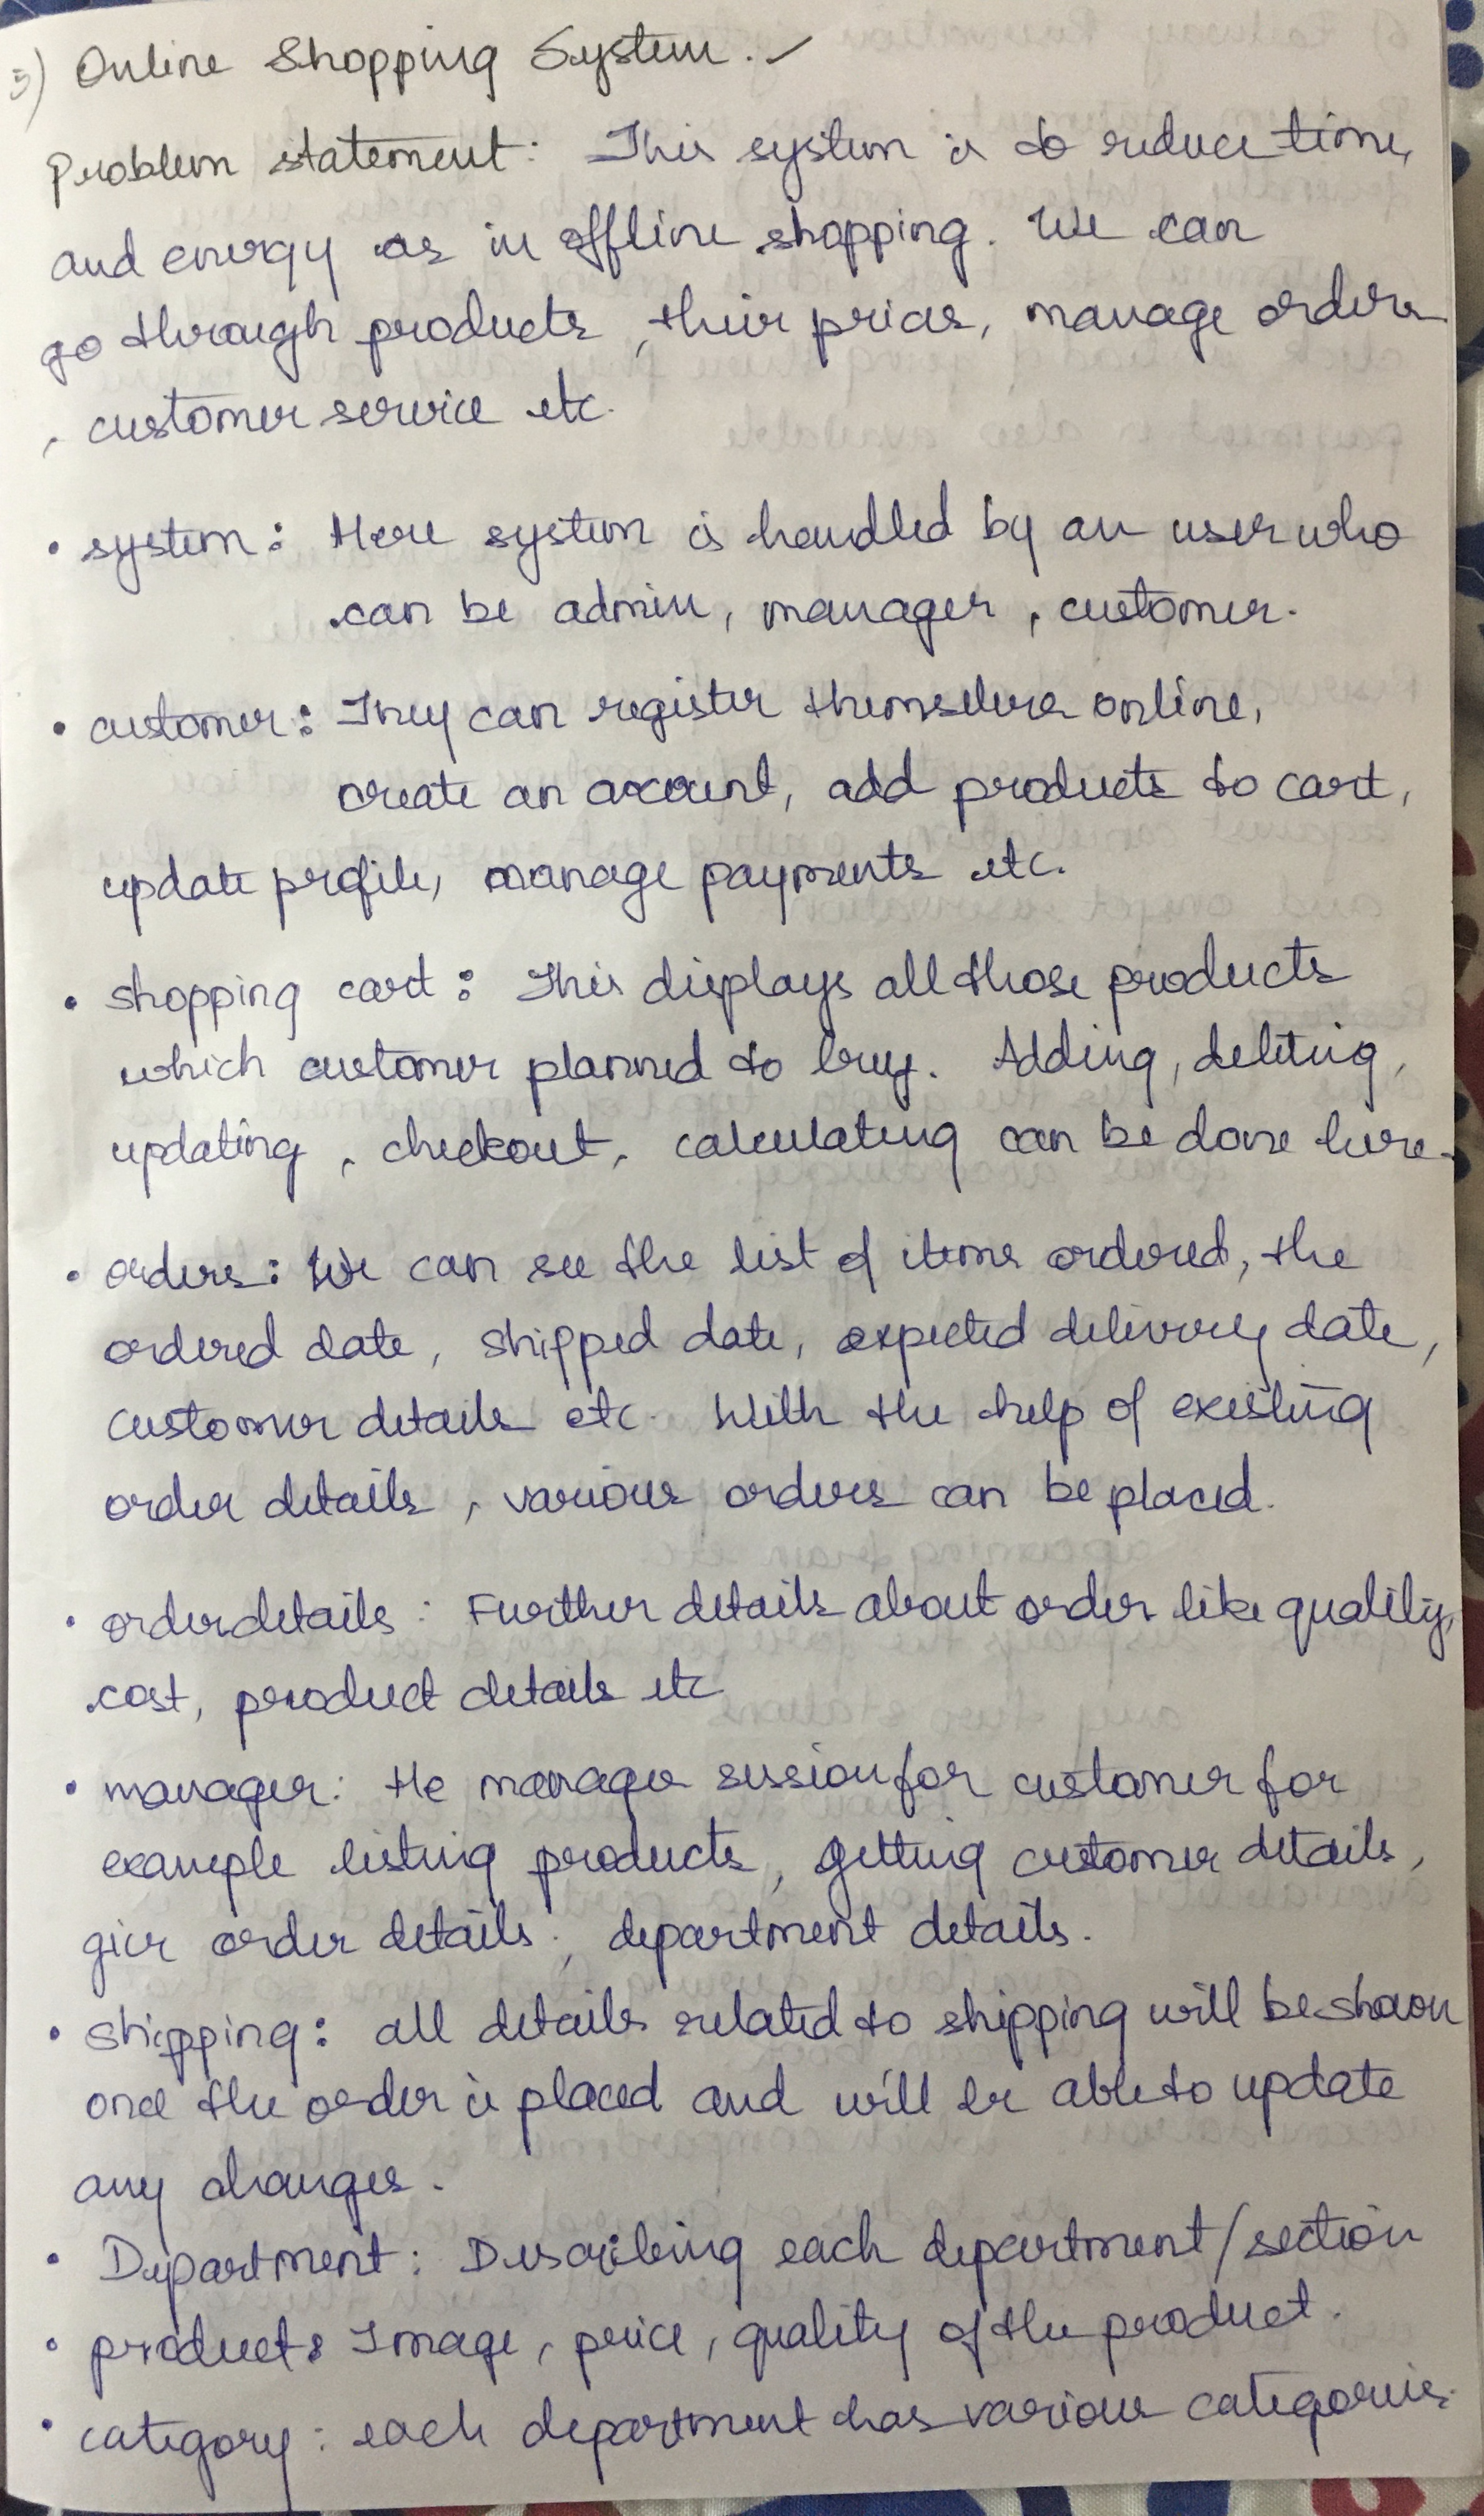 5) Online Shopping System.
Problem statement: This system is to reduce time,
and energy as in offline shopping. We can
go through products, their prices, manage orders
, customer service etc.
• system: Here system is handled by an user who
can be admin, manager, customer.
• customer: They can register themselves online,
create an account, add products to cart,
update profile, manage payments etc.
• shopping cart: This displays all those products
which customer planned to buy. Adding, deleting,
updating, checkout, calculating can be done here.
• orders: We can see the list of items ordered, the
ordered date, shipped date, expected delivery date,
customer details etc. With the help of existing
order details, various orders can be placed.
• orderdetails: Further details about order like quality,
cost, product details etc
• manager: He manages session for customer for
example listing products, getting customer details,
give order details, department details.
• shipping: all details related to shipping will be shown
once the order is placed and will be able to update
any changes.
• Department: Describing each department/section
• product: Image, price, quality of the product.
• category: each department has various categories.